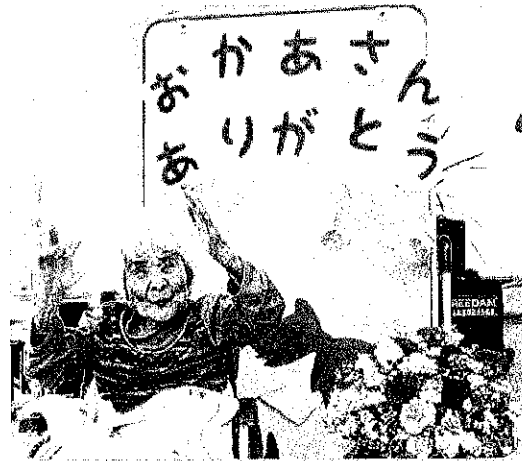 おかあさん
ありがとう
REEDAM